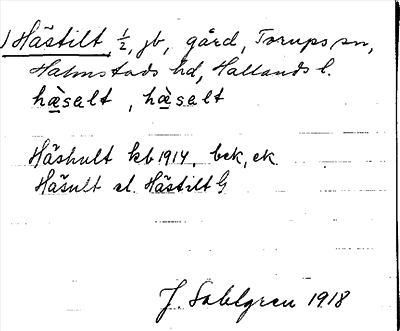 ) Hästilt, 1/2, jb, gård, Torups sn,
Halmstads hd, Hallands l.
hàselt, hàselt
Häshult kb 1914, bek, ek.
Häsult el. Hästilt G
J. Sahlgren 1918